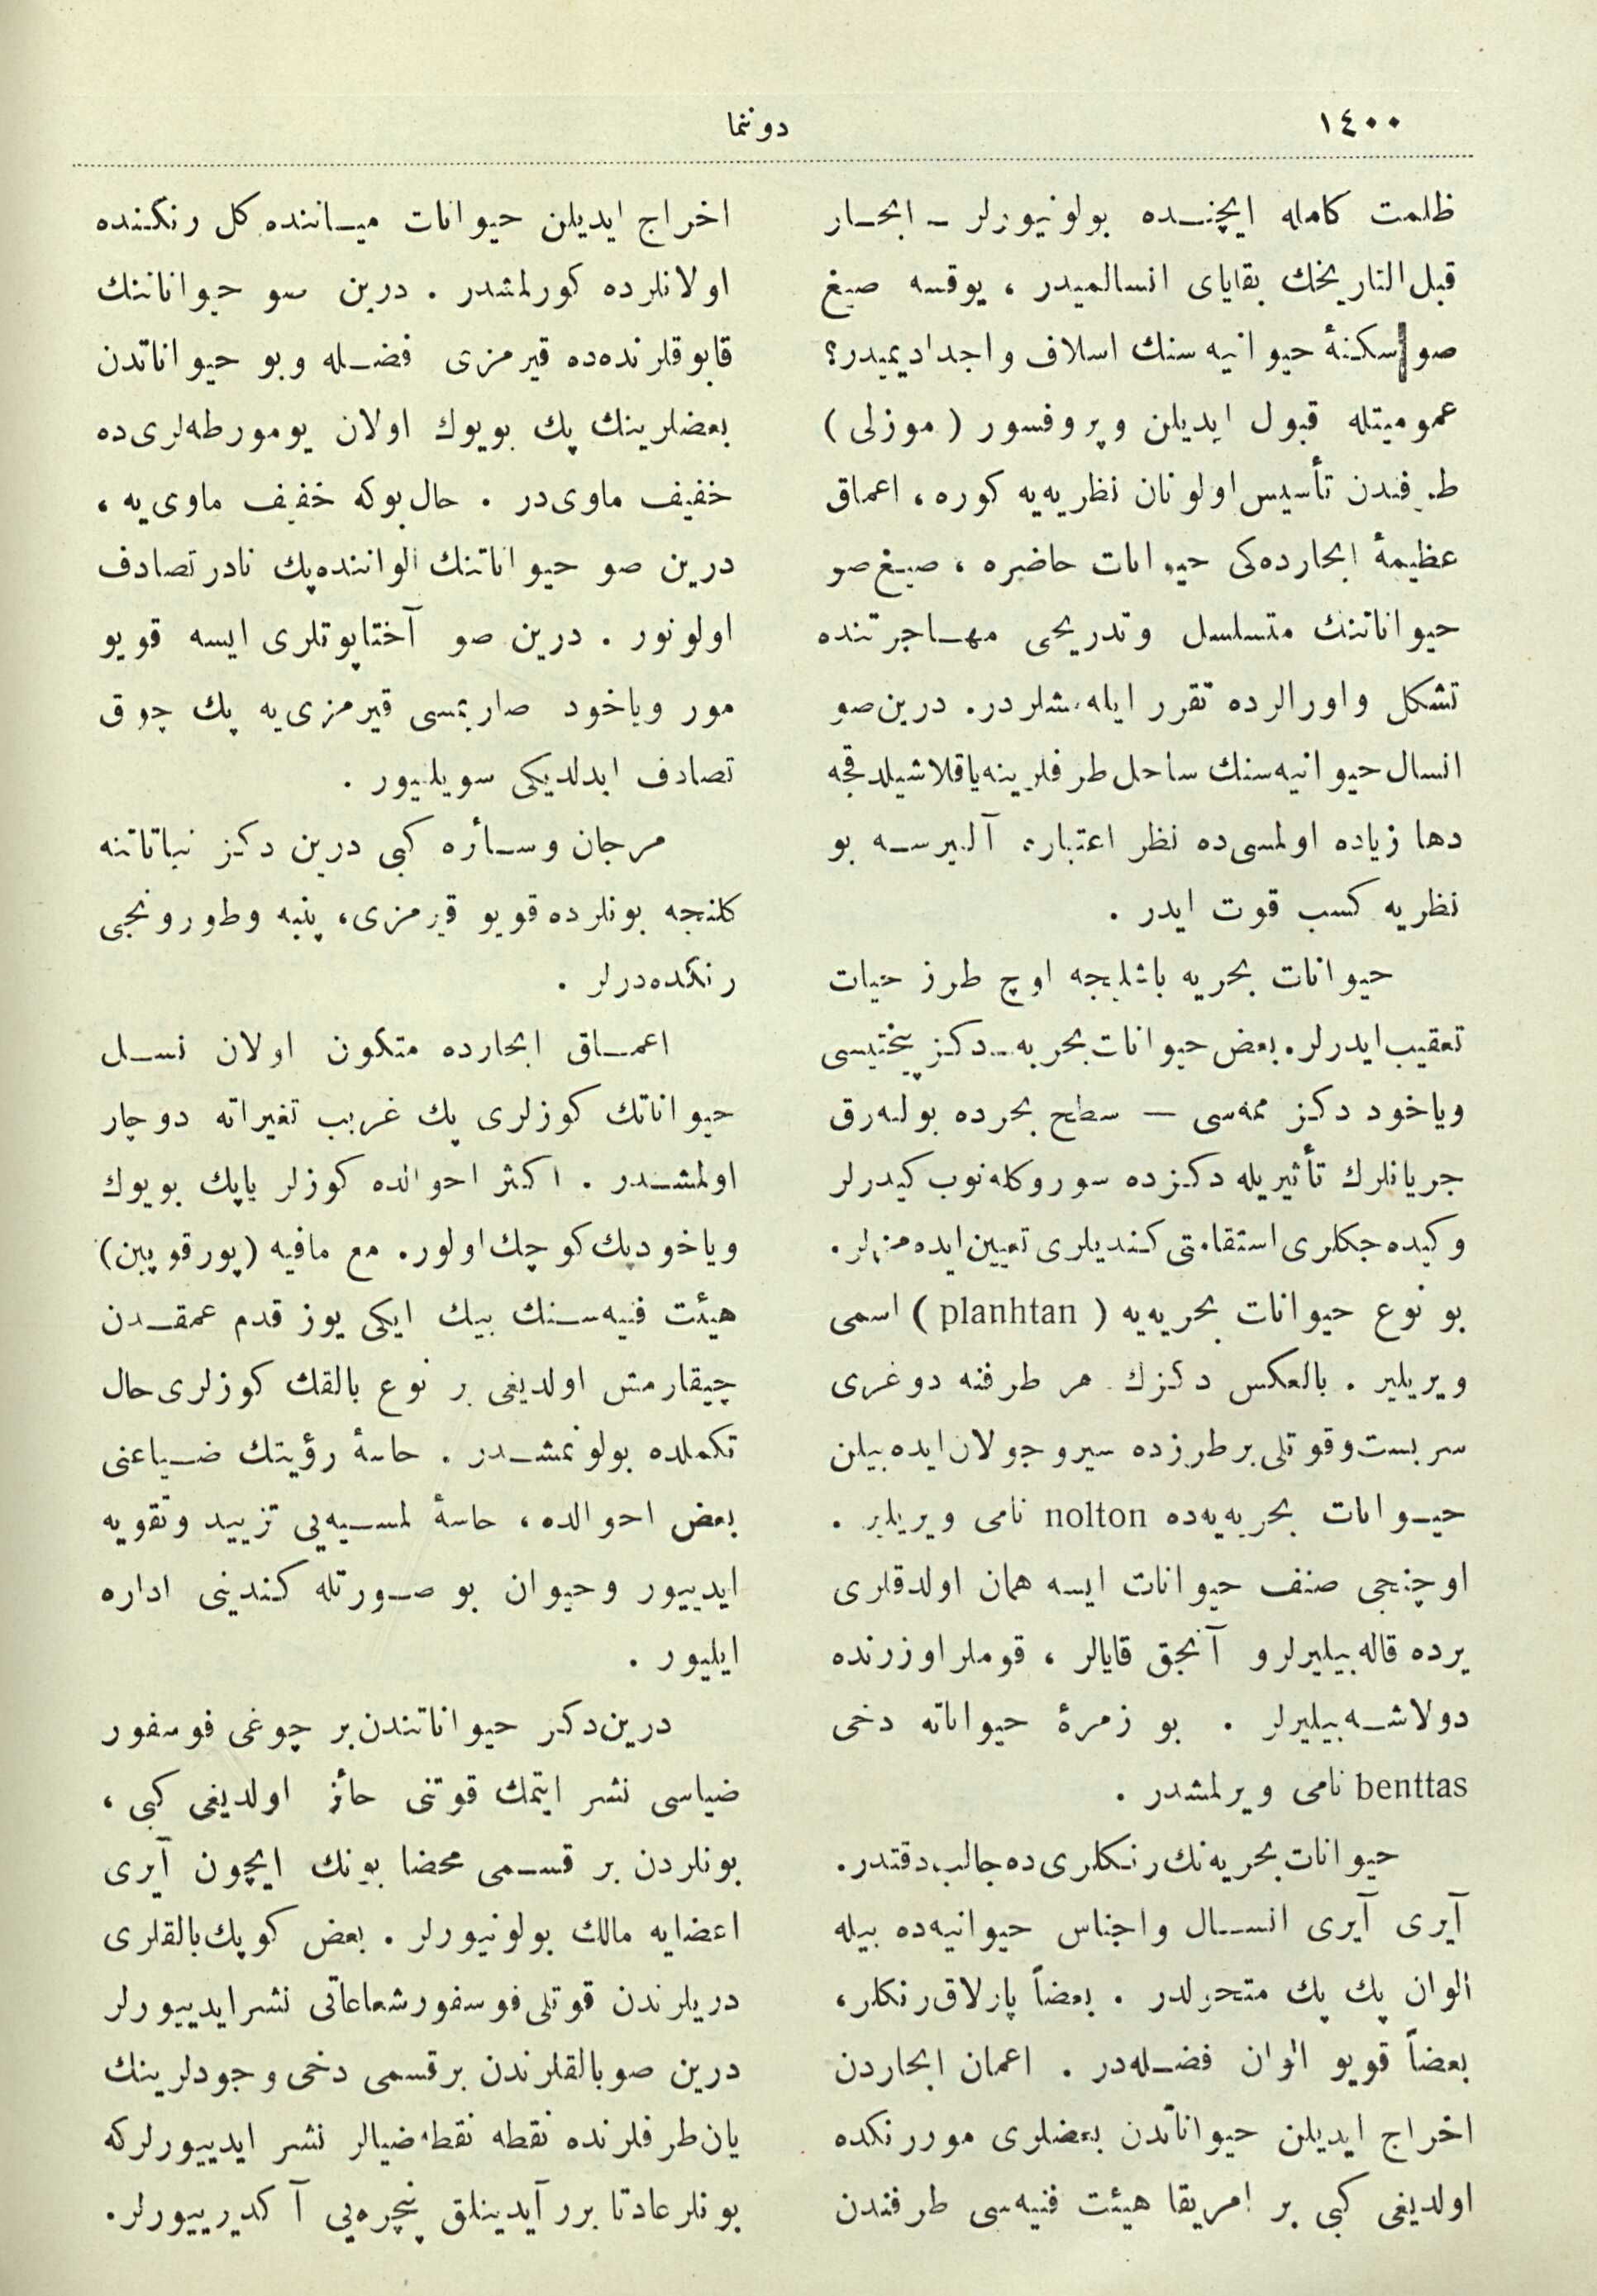 ١٤٠٠
دوننما
ظلمت كامله ایچنـده بولونیورلر ـ ابحـار
قبل‌التاریخك بقایای انسالمیدر ، یوقسه صیغ
صو سكنهٔ حیوانیه سنك اسلاف واجدادیمیدر؟
عمومیتله قبول ایدیلن وپروفسور ( موزلی )
طرفندن تأسیس اولونان نظریه‌یه كوره ، اعماق
عظیمهٔ ابحارده‌كی حیوانات حاضره ، صیغ صو
حیواناتنك متسلسل وتدریجی مهـاجرتنده
تشكل واورالرده تقرر ایله‌مشلردر. درین صو
انسال حیوانیه‌سنك ساحل طرفلرینه یاقلاشیلدقجه
دها زیاده اولمسی‌ده نظر اعتباره آلیرسـه بو
نظریه كسب قوت ایدر .
حیوانات بحریه باشلیجه اوچ طرز حیات
تعقیب ایدرلر. بعض حیوانات بحریه ـ دكز پیختیسی
ویاخود دكز ممه‌سی — سطح بحرده بولنه‌رق
جریانلرك تأثیریله دكزده سوروكله‌نوب كیدرلر
وكیده‌جكلری استقامتی كندیلری تعیین ایده‌مزلر.
بو نوع حیوانات بحریه‌یه ( planhtan ) اسمی
ویریلیر . بالعكس دكزك هر طرفنه دوغری
سربست وقوتلی بر طرزده سیر وجولان ایده‌بیلن
حیـوانات بحریه‌یه‌ده nolton نامی ویریلیر .
اوچنجی صنف حیوانات ایسه همان اولدقلری
یرده قاله بیلیرلرو آنجق قایالر ، قوملر اوزرنده
دولاشـه‌بیلیرلر . بو زمرهٔ حیواناته دخی
benttas نامی ویرلمشدر .
حیوانات بحریه‌نك رنكلری‌ده جالب دقتدر.
آیری آیری انسـال واجناس حیوانیه‌ده بیله
الوان پك پك متحولدر . بعضاً پارلاق رنكلر،
بعضاً قویو الوان فضـله‌در . اعماق ابحاردن
اخراج ایدیلن حیواناتدن بعضلری مور رنكده
اولدیغی كبی بر امریقا هیئت فنیه‌سی طرفندن
اخراج ایدیلن حیوانات میـاننده كل رنكنده
اولانلرده كورلمشدر . درین صو حیواناتنك
قابوقلرنده‌ده قیرمزی فضـله وبو حیواناتدن
بعضلرینك پك بویوك اولان یومورطه‌لری‌ده
خفیف ماوی‌در . حال بوكه خفیف ماوی‌یه ،
درین صو حیواناتنك الواننده پك نادر تصادف
اولونور . درین صو آختاپوتلری ایسه قویو
مور ویاخود صاریمسی قیرمزی‌یه پك چوق
تصادف ایدلدیكی سویلنیور .
مرجان وسـائره كبی درین دكز نباتاتنه
كلنجه بونلرده قویو قیرمزی، پنبه وطورونجی
رنكده‌درلر .
اعمـاق ابحارده متكون اولان نسـل
حیواناتك كوزلری پك غریب تغیراته دوچار
اولمشـدر . اكثر احوالده كوزلر یاپك بویوك
ویاخود پك كوچك اولور. مع مافیه (پورقوپین)
هیئت فنیه‌سـنك بیك ایكی یوز قدم عمقـدن
چیقارمش اولدیغی بر نوع بالقك كوزلری حال
تكملده بولونمشـدر . حاسهٔ رؤیتك ضـیاعنی
بعض احوالده ، حاسهٔ لمسـیه‌یی تزیید وتقویه
ایدییور وحیوان بو صـورتله كندینی اداره
ایلیور .
درین دكز حیواناتندن بر چوغی فوسفور
ضیاسی نشر ایتمك قوتنی حائز اولدیغی كبی ،
بونلردن بر قسـمی محضا بونك ایچون آیری
اعضایه مالك بولونیورلر . بعض كوپك بالقلری
دریلرندن قوتلی فوسفور شعاعاتی نشر ایدییورلر
درین صو بالقلرندن بر قسمی دخی وجودلرینك
یان طرفلرنده نقطه نقطه ضیالر نشر ایدییورلركه
بونلر عادتا برر آیدینلق پنچره‌یی آكدیرییورلر.